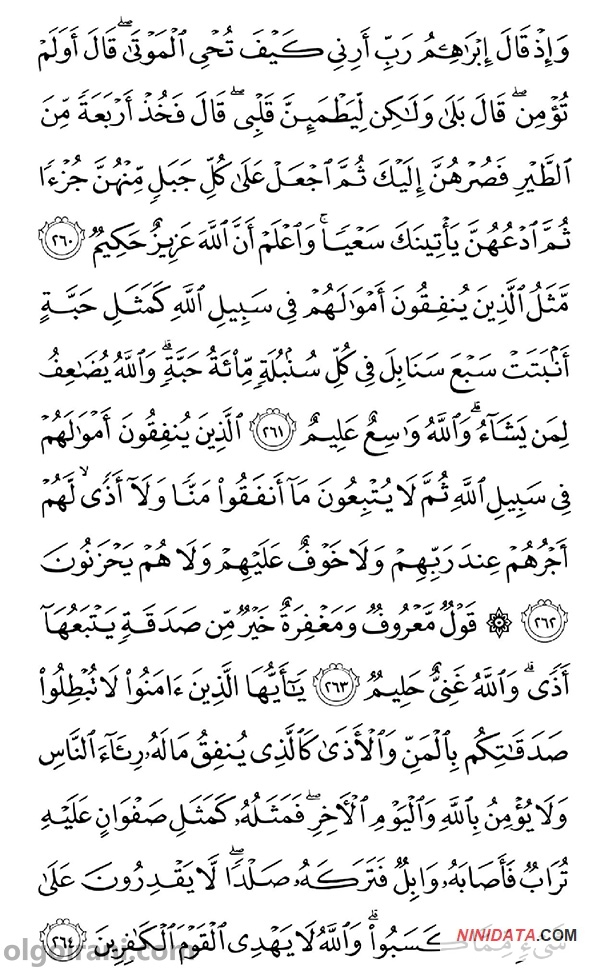 وَإِذْ قَالَ إِبْرَاهِـۧمُ رَبِّ أَرِنِي كَيْفَ تُحْيِ الْمَوْتَىٰ ۖ قَالَ أَوَلَمْ
تُؤْمِن ۖ قَالَ بَلَىٰ وَلَـٰكِن لِّيَطْمَئِنَّ قَلْبِي ۖ قَالَ فَخُذْ أَرْبَعَةً مِّنَ
الطَّيْرِ فَصُرْهُنَّ إِلَيْكَ ثُمَّ اجْعَلْ عَلَىٰ كُلِّ جَبَلٍ مِّنْهُنَّ جُزْءًا
ثُمَّ ادْعُهُنَّ يَأْتِينَكَ سَعْيًا ۚ وَاعْلَمْ أَنَّ اللَّهَ عَزِيزٌ حَكِيمٌ ٢٦٠
مَّثَلُ الَّذِينَ يُنفِقُونَ أَمْوَالَهُمْ فِي سَبِيلِ اللَّهِ كَمَثَلِ حَبَّةٍ
أَنبَتَتْ سَبْعَ سَنَابِلَ فِي كُلِّ سُنبُلَةٍ مِّائَةُ حَبَّةٍ ۗ وَاللَّهُ يُضَاعِفُ
لِمَن يَشَاءُ ۗ وَاللَّهُ وَاسِعٌ عَلِيمٌ ٢٦١ الَّذِينَ يُنفِقُونَ أَمْوَالَهُمْ
فِي سَبِيلِ اللَّهِ ثُمَّ لَا يُتْبِعُونَ مَا أَنفَقُوا مَنًّا وَلَا أَذًى ۙ لَّهُمْ
أَجْرُهُمْ عِندَ رَبِّهِمْ وَلَا خَوْفٌ عَلَيْهِمْ وَلَا هُمْ يَحْزَنُونَ
٢٦٢ ۞ قَوْلٌ مَّعْرُوفٌ وَمَغْفِرَةٌ خَيْرٌ مِّن صَدَقَةٍ يَتْبَعُهَا
أَذًى ۗ وَاللَّهُ غَنِيٌّ حَلِيمٌ ٢٦٣ يَا أَيُّهَا الَّذِينَ ءَامَنُوا لَا تُبْطِلُوا
صَدَقَاتِكُم بِالْمَنِّ وَالْأَذَىٰ كَالَّذِي يُنفِقُ مَالَهُ رِئَاءَ النَّاسِ
وَلَا يُؤْمِنُ بِاللَّهِ وَالْيَوْمِ الْآخِرِ ۖ فَمَثَلُهُ كَمَثَلِ صَفْوَانٍ عَلَيْهِ
تُرَابٌ فَأَصَابَهُ وَابِلٌ فَتَرَكَهُ صَلْدًا ۖ لَّا يَقْدِرُونَ عَلَىٰ
شَيْءٍ مِّمَّا كَسَبُوا ۗ وَاللَّهُ لَا يَهْدِي الْقَوْمَ الْكَافِرِينَ ٢٦٤
NINIDATA.COM